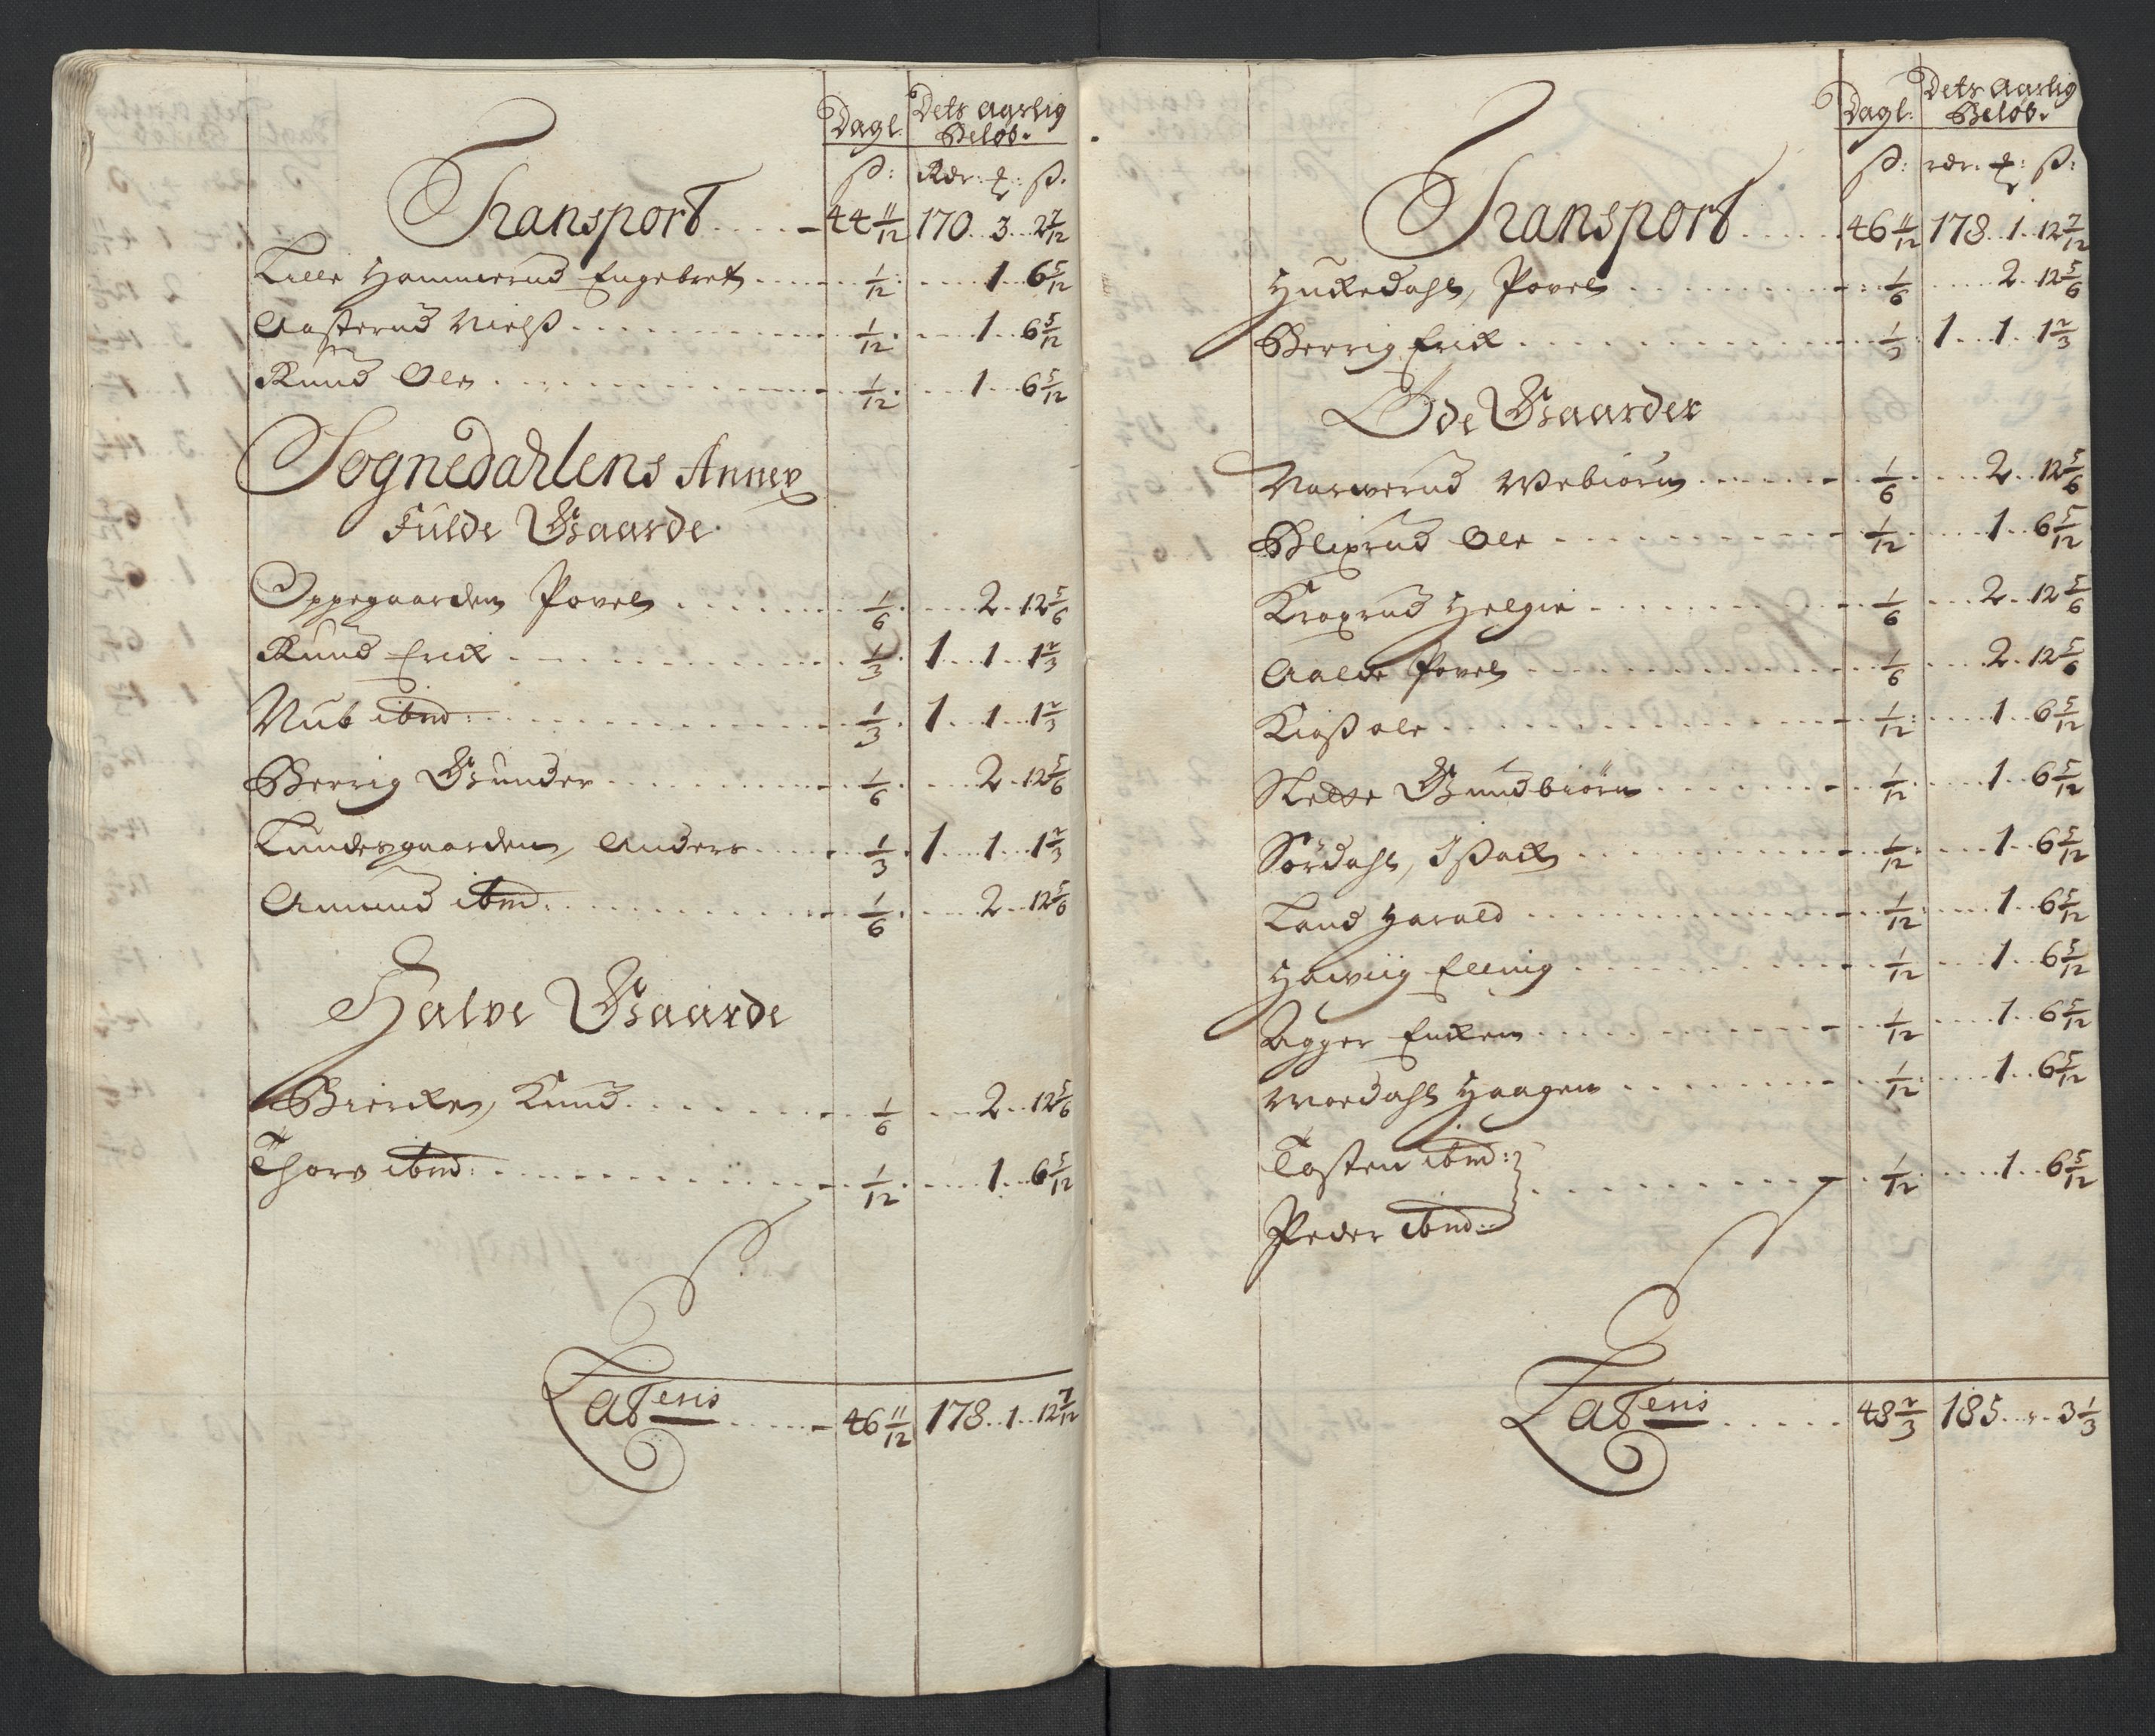 Dagl. Dets Aarlig Beløb.
ß: Rdr: ß.
Transport 44 11/12 170 .. 3 .. 2 7/12
Lille Hammerud Engebret 1/12 1 .. 6 5/12
Aasterud Nielß 1/12 1 .. 6 5/12
Rund Ole 1/12 1 .. 6 5/12
Sognedahlens Annex
Fulde Gaarde
Oppegaarden Povel 1/6 2 .. 12 5/6
Rund Erick 1/3 1 .. 1 .. 1 2/3
Nub ibnd: 1/3 1 .. 1 .. 1 2/3
Berrig Gunder 1/6 2 .. 12 5/6
Lundesgaarden, Anders 1/3 1 .. 1 .. 1 2/3
Amund ibnd: 1/6 2 .. 12 5/6
Halve Gaarde
Biercke, Knud 1/6 2 .. 12 5/6
Thorv ibnd: 1/12 1 .. 6 5/12
Lateris 46 11/12 178 .. 1 .. 12 7/12
Dagl: Dets Aarlig Beløb.
ß: rdr. ß:
Transport 46 11/12 178 .. 1 .. 12 7/12
Huckedahl, Povel 1/6 2 .. 12 5/6
Berrig Erick 1/3 1 .. 1 .. 1 2/3
Øde Gaarder
Narverud Webiørn 1/6 2 .. 12 5/6
Blixrud Ole 1/12 1 .. 6 5/12
Kroxrud Helgie 1/6 2 .. 12 5/6
Aalde Povel 1/6 2 .. 12 5/6
Kioß ole 1/12 1 .. 6 5/12
Slette Gundbiørn 1/12 1 .. 6 5/12
Sørdahl, Ißack 1/12 1 .. 6 5/12
Land Harald 1/12 1 .. 6 5/12
Hawiig Elling 1/12 1 .. 6 5/12
Agger Encken 1/12 1 .. 6 5/12
Wordahl Haagen 1/12 1 .. 6 5/12
Tosten ibnd: 1/12 1 .. 6 5/12
Peder ibnd:
Lateris 48 2/3 185 .. - .. 3 1/3